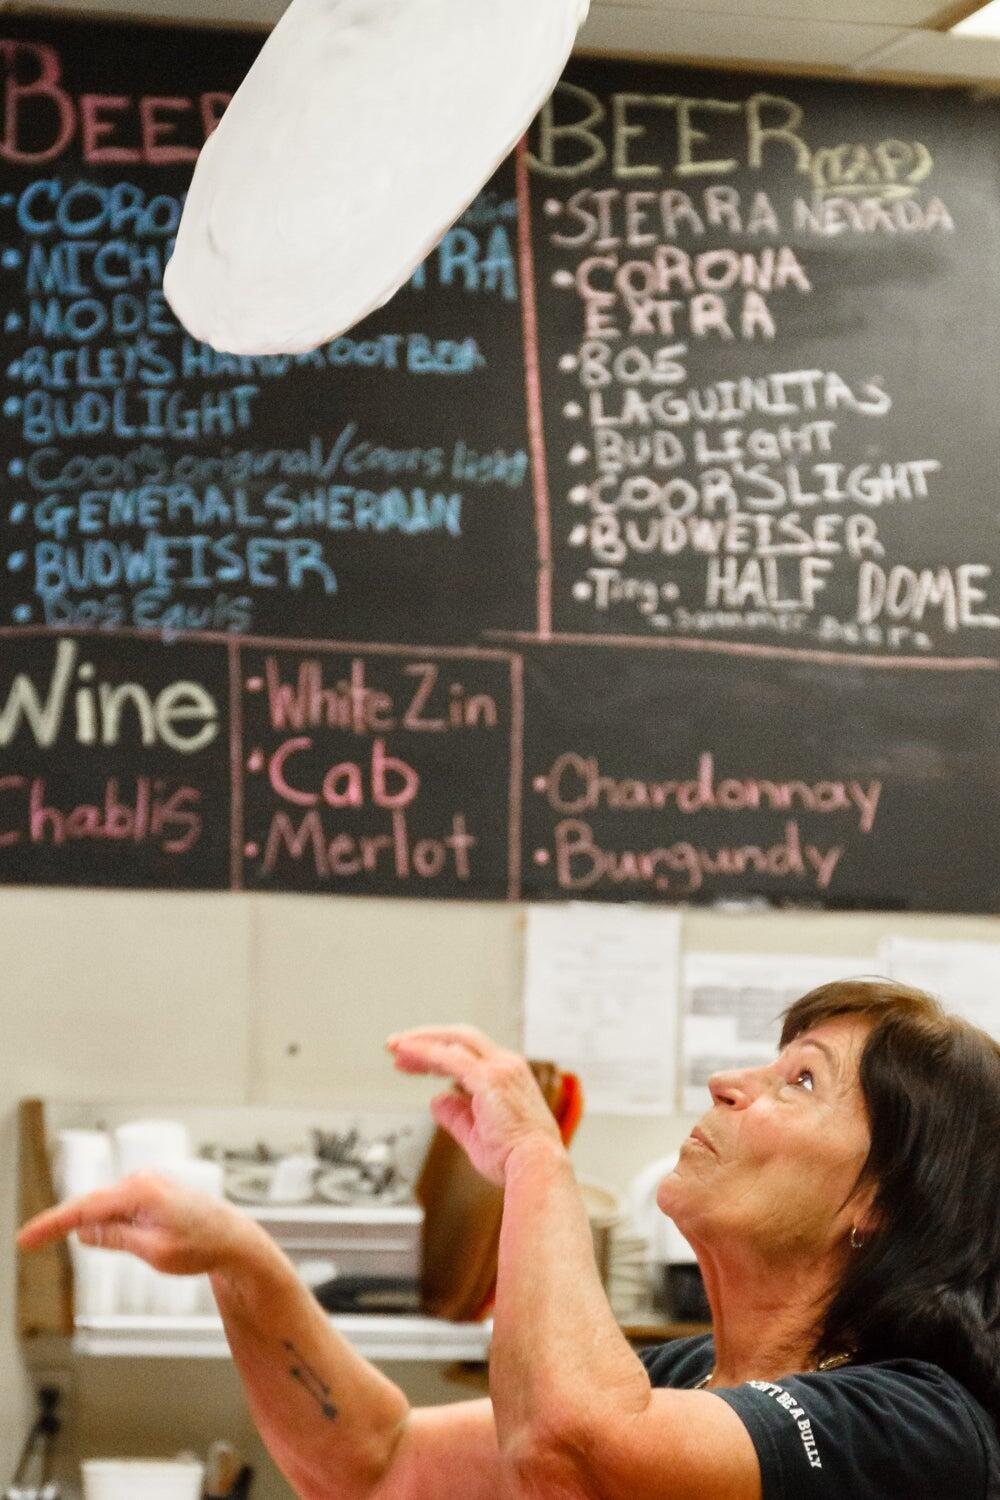 BEER
• CORO
• MICH TRA
• MODE
• RILEY'S HARD ROOT BEA
• BUD LIGHT
• Coors original/coors light
• GENERAL SHERMAN
• BUDWEISER
• Dos Equis
BEER (TAP)
• SIERRA NEVADA
• CORONA
EXTRA
• 805
• LAGUINITAS
• BUD LIGHT
• COOR'S LIGHT
• BUDWEISER
• Tioga • HALF DOME
Wine
Chablis
• White Zin
• Cab
• Merlot
• Chardonnay
• Burgundy
DON'T BE A BULLY